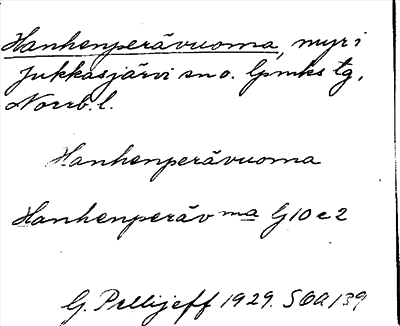 Hanhenperävuoma, myr i
Jukkasjärvi sn o. lpmks tg,
Norrb. l.
Hanhenperävuoma
Hanhenperäv ma G 10 e 2
G. Pellijeff 1929. SOA 139